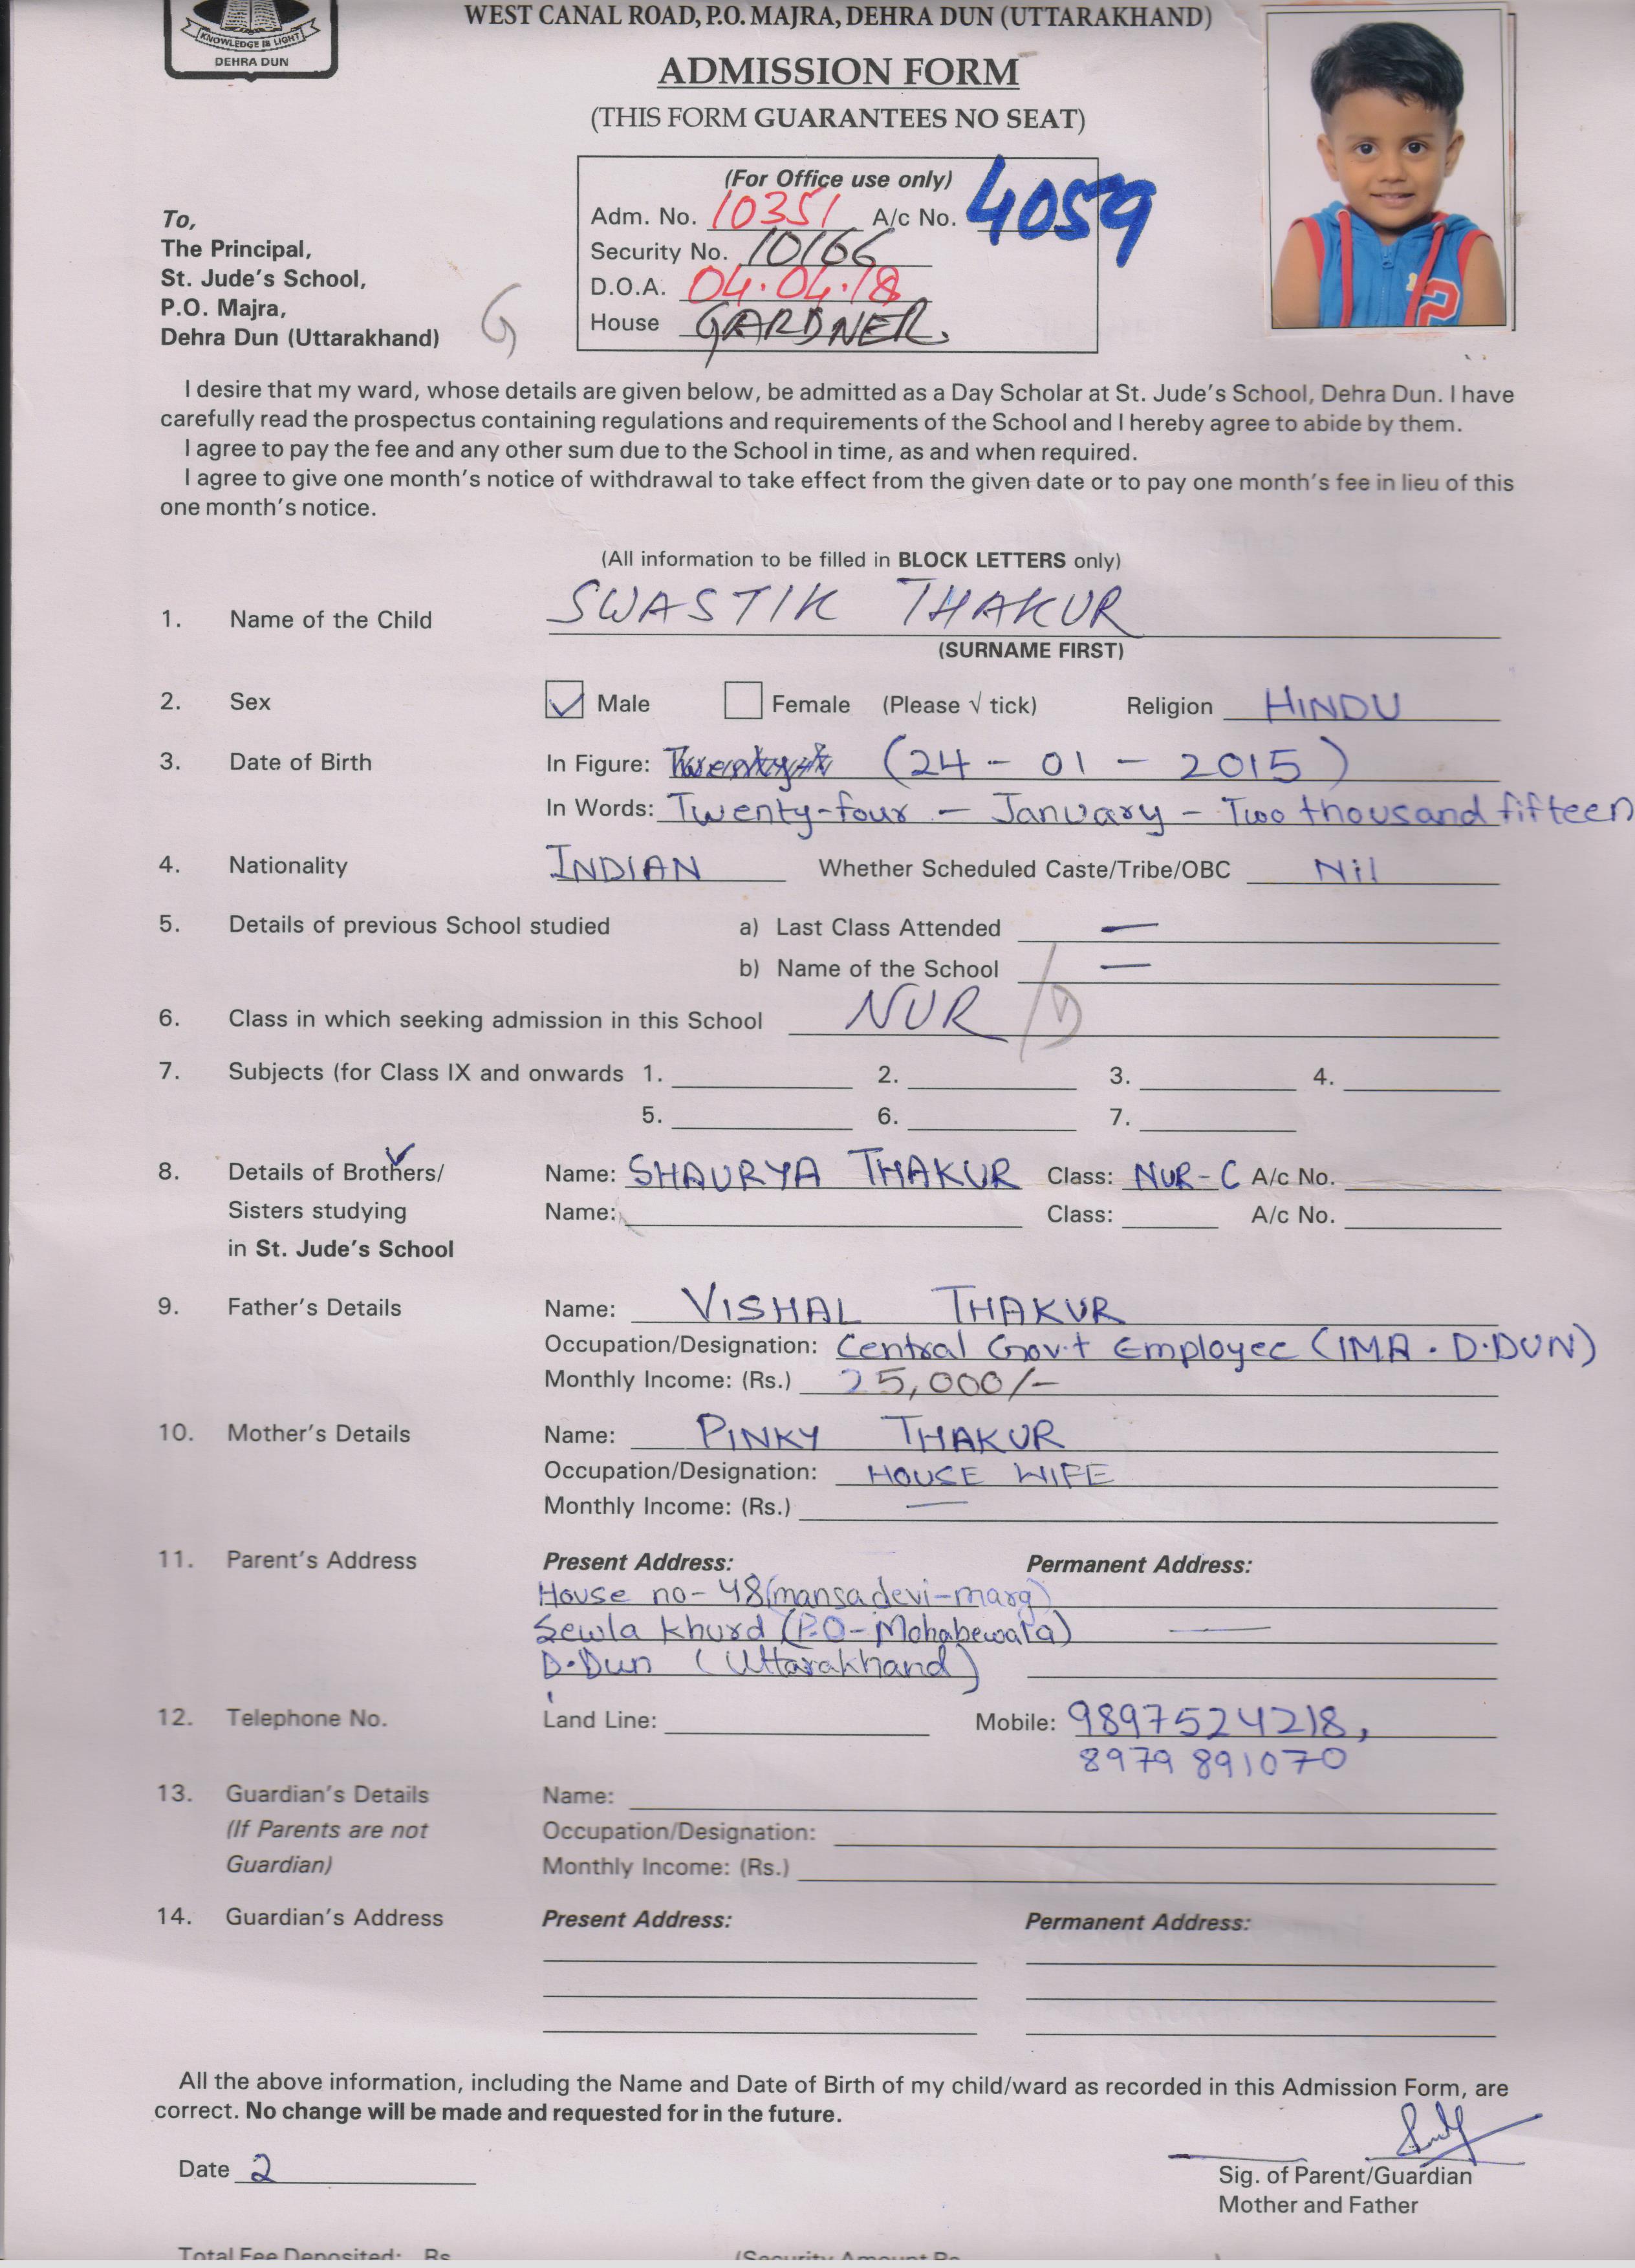 WEST CANAL ROAD, P.O. MAJRA, DEHRA DUN (UTTARAKHAND)
KNOWLEDGE IS LIGHT
DEHRA DUN
ADMISSION FORM
(THIS FORM GUARANTEES NO SEAT)
(For Office use only)
Adm. No. 10351 A/c No. 4059
Security No. 10166
D.O.A. 04.04.18
House GARDNER.
To,
The Principal,
St. Jude's School,
P.O. Majra,
Dehra Dun (Uttarakhand)
G
I desire that my ward, whose details are given below, be admitted as a Day Scholar at St. Jude's School, Dehra Dun. I have
carefully read the prospectus containing regulations and requirements of the School and I hereby agree to abide by them.
I agree to pay the fee and any other sum due to the School in time, as and when required.
I agree to give one month's notice of withdrawal to take effect from the given date or to pay one month's fee in lieu of this
one month's notice.
(All information to be filled in BLOCK LETTERS only)
1. Name of the Child SWASTIK THAKUR
(SURNAME FIRST)
2. Sex Male Female (Please √ tick) Religion HINDU
3. Date of Birth In Figure: (24 - 01 - 2015)
In Words: Twenty-four - January - Two thousand fifteen
4. Nationality INDIAN Whether Scheduled Caste/Tribe/OBC Nil
5. Details of previous School studied a) Last Class Attended —
b) Name of the School —
6. Class in which seeking admission in this School NUR / D
7. Subjects (for Class IX and onwards 1. 2. 3. 4.
5. 6. 7.
8. Details of Brothers/ Name: SHAURYA THAKUR Class: NUR-C A/c No.
Sisters studying Name: Class: A/c No.
in St. Jude's School
9. Father's Details Name: VISHAL THAKUR
Occupation/Designation: Central Gov.t Employee (IMA. D.DUN)
Monthly Income: (Rs.) 25,000/-
10. Mother's Details Name: PINKY THAKUR
Occupation/Designation: HOUSE WIFE
Monthly Income: (Rs.) —
11. Parent's Address Present Address: Permanent Address:
House no-48(mansadevi-marg)
Sewla khurd (P.O-Mohabewala) —
D.Dun (Uttarakhand)
12. Telephone No. Land Line: Mobile: 9897524218,
8979891070
13. Guardian's Details Name:
(If Parents are not Occupation/Designation:
Guardian) Monthly Income: (Rs.)
14. Guardian's Address Present Address: Permanent Address:
All the above information, including the Name and Date of Birth of my child/ward as recorded in this Admission Form, are
correct. No change will be made and requested for in the future.
Date 2
Sig. of Parent/Guardian
Mother and Father
Total Fee Deposited: Rs (Security Amount Rs )